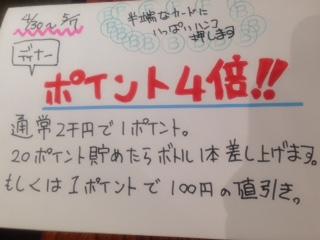 4/30〜5/7
半端なカードに
いっぱいハンコ
押します
ディナー
ポイント4倍!!
通常2千円で1ポイント。
20ポイント貯めたらボトル1本差し上げます。
もしくは1ポイントで100円の値引き。